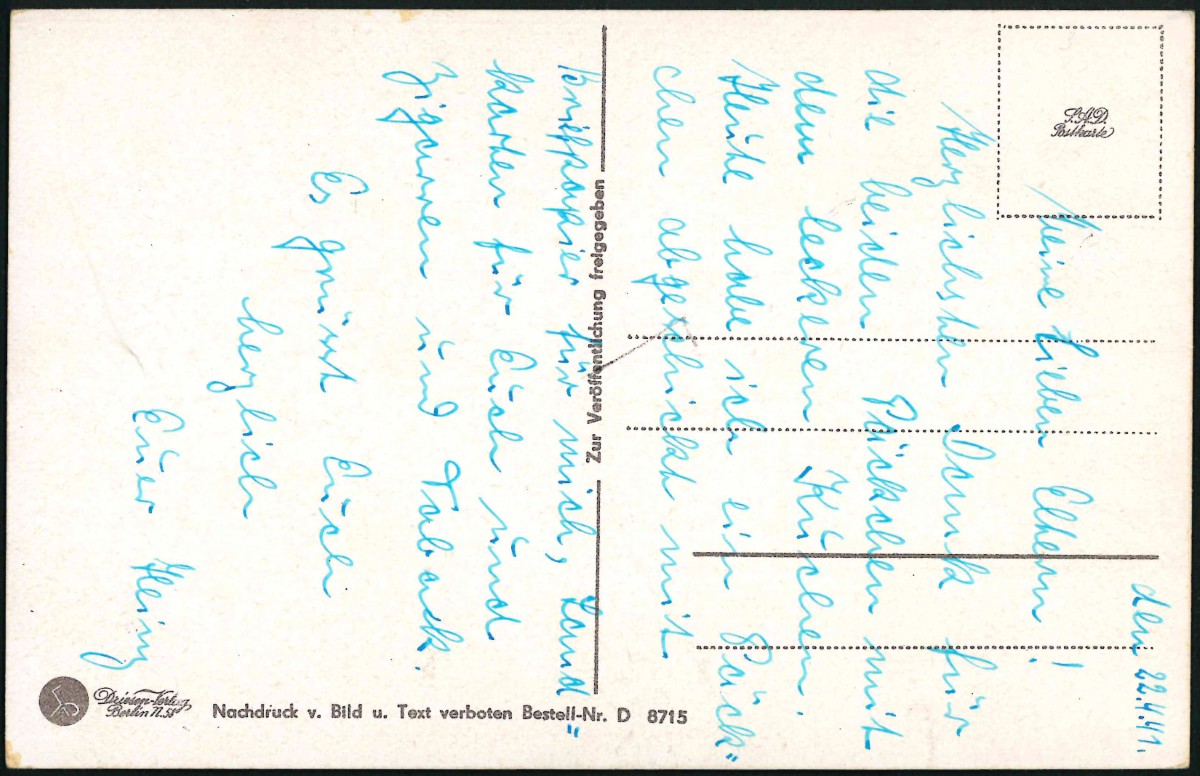 den 22.4.41.
Meine Lieben Eltern!
Herzlichsten Dank für
die beiden Päckchen mit
dem leckeren Kuchen.
Heute habe ich ein Päck=
chen abgeschickt mit
Briefpapier für mich, Land=
karten für Euch und
Zigarren und Taback.
Es grüsst Euch
herzlich
Euer Heinz
S.A.D.
Postkarte
Zur Veröffentlichung freigegeben
Driesen-Verlag
Berlin N.58
Nachdruck v. Bild u. Text verboten Bestell-Nr. D 8715